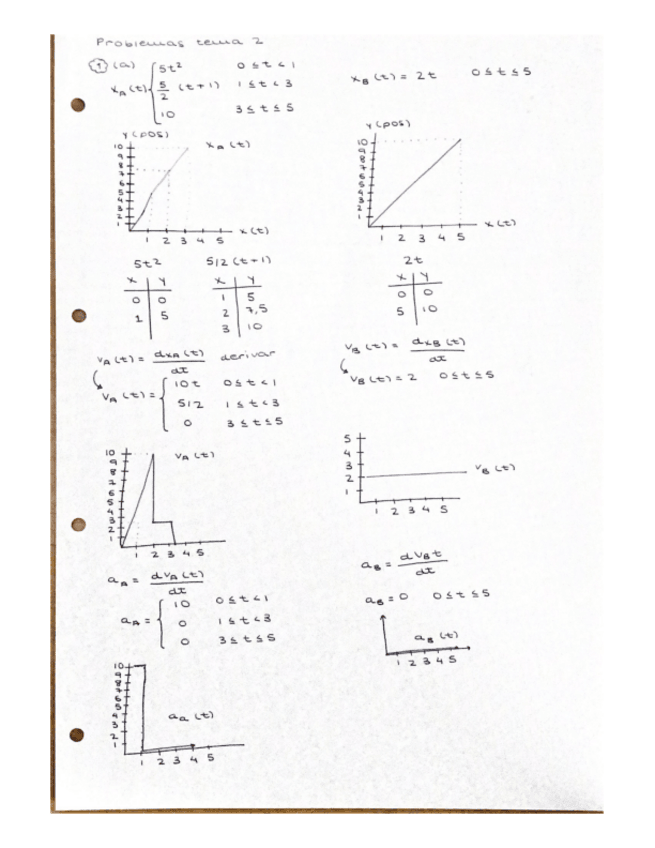 Problemas tema 2
1 (a) x_A(t) { 5t² 0 ≤ t < 1
5/2 (t+1) 1 ≤ t < 3
10 3 ≤ t ≤ 5
x_B(t) = 2t 0 ≤ t ≤ 5
Y (pos) x_A(t)
10
9
8
7
6
5
4
3
2
1
1 2 3 4 5 x(t)
Y (pos)
10
9
8
7
6
5
4
3
2
1
1 2 3 4 5 x(t)
5t² 5/2 (t+1)
x y x y
0 0 1 5
1 5 2 7,5
3 10
2t
x y
0 0
5 10
v_A(t) = dx_A(t)/dt derivar
v_A(t) = { 10t 0 ≤ t < 1
5/2 1 ≤ t < 3
0 3 ≤ t ≤ 5
v_B(t) = dx_B(t)/dt
v_B(t) = 2 0 ≤ t ≤ 5
10 v_A(t)
9
8
7
6
5
4
3
2
1
1 2 3 4 5
5
4
3
2
1
v_B(t)
1 2 3 4 5
a_A = dv_A(t)/dt
a_A = { 10 0 ≤ t < 1
0 1 ≤ t < 3
0 3 ≤ t ≤ 5
a_B = dv_B t/dt
a_B = 0 0 ≤ t ≤ 5
a_B(t)
1 2 3 4 5
10
9
8
7
6
5
4
3
2
1
a_a(t)
1 2 3 4 5